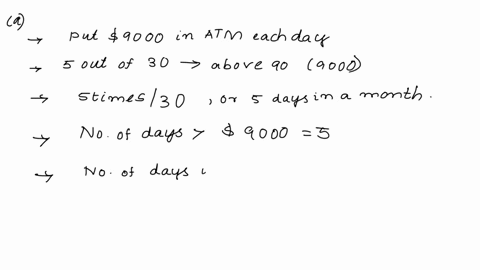 (a)
→ put $9000 in ATM each day
→ 5 out of 30 → above 90 (9000)
→ 5times/30 , or 5 days in a month.
→ No. of days > $9000 = 5
→ No. of days